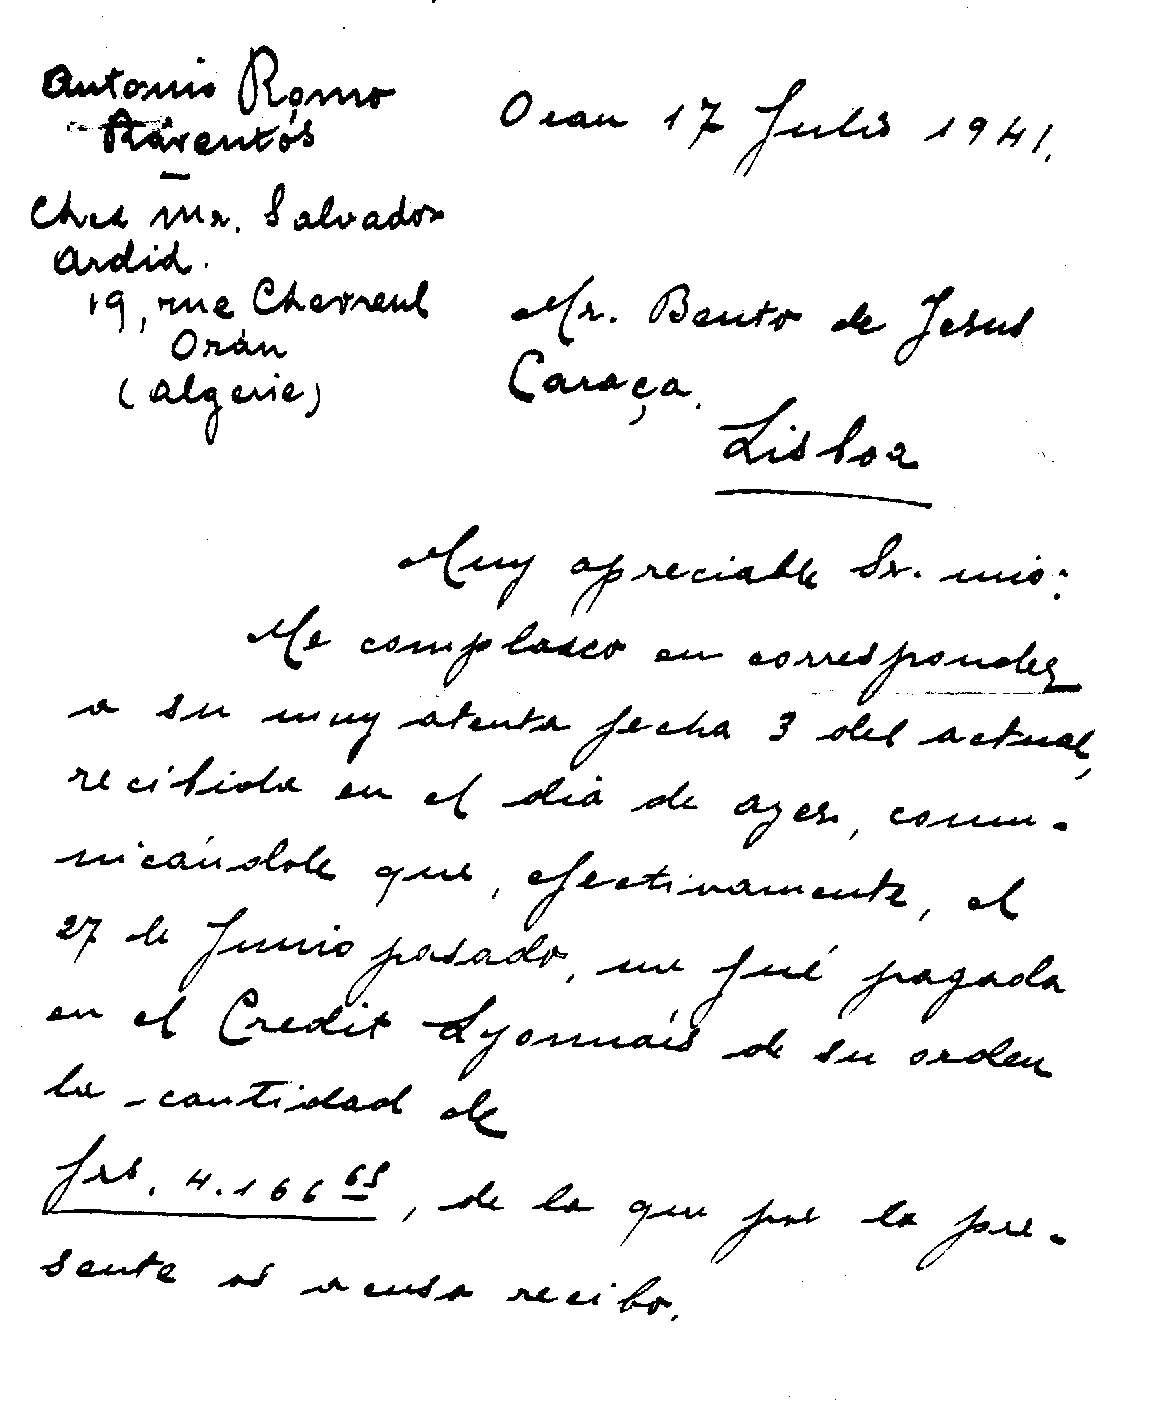 Antonio Romo
Raventós
Chez Mr. Salvador
Ardid.
19, rue Chevreul
Orán
(Algerie)
Oran 17 Julio 1941.
Mr. Bento de Jesus
Caraça.
Lisboa
Muy apreciable Sr. mio:
Me complazco en corresponder
a su muy atenta fecha 3 del actual,
recibida en el dia de ayer, comu-
nicándole que, efectivamente, el
27 de Junio pasado, me fué pagada
en el Credit Lyonnais de su orden
la cantidad de
frs. 4.166 65, de la que por la pre-
sente os acuso recibo.